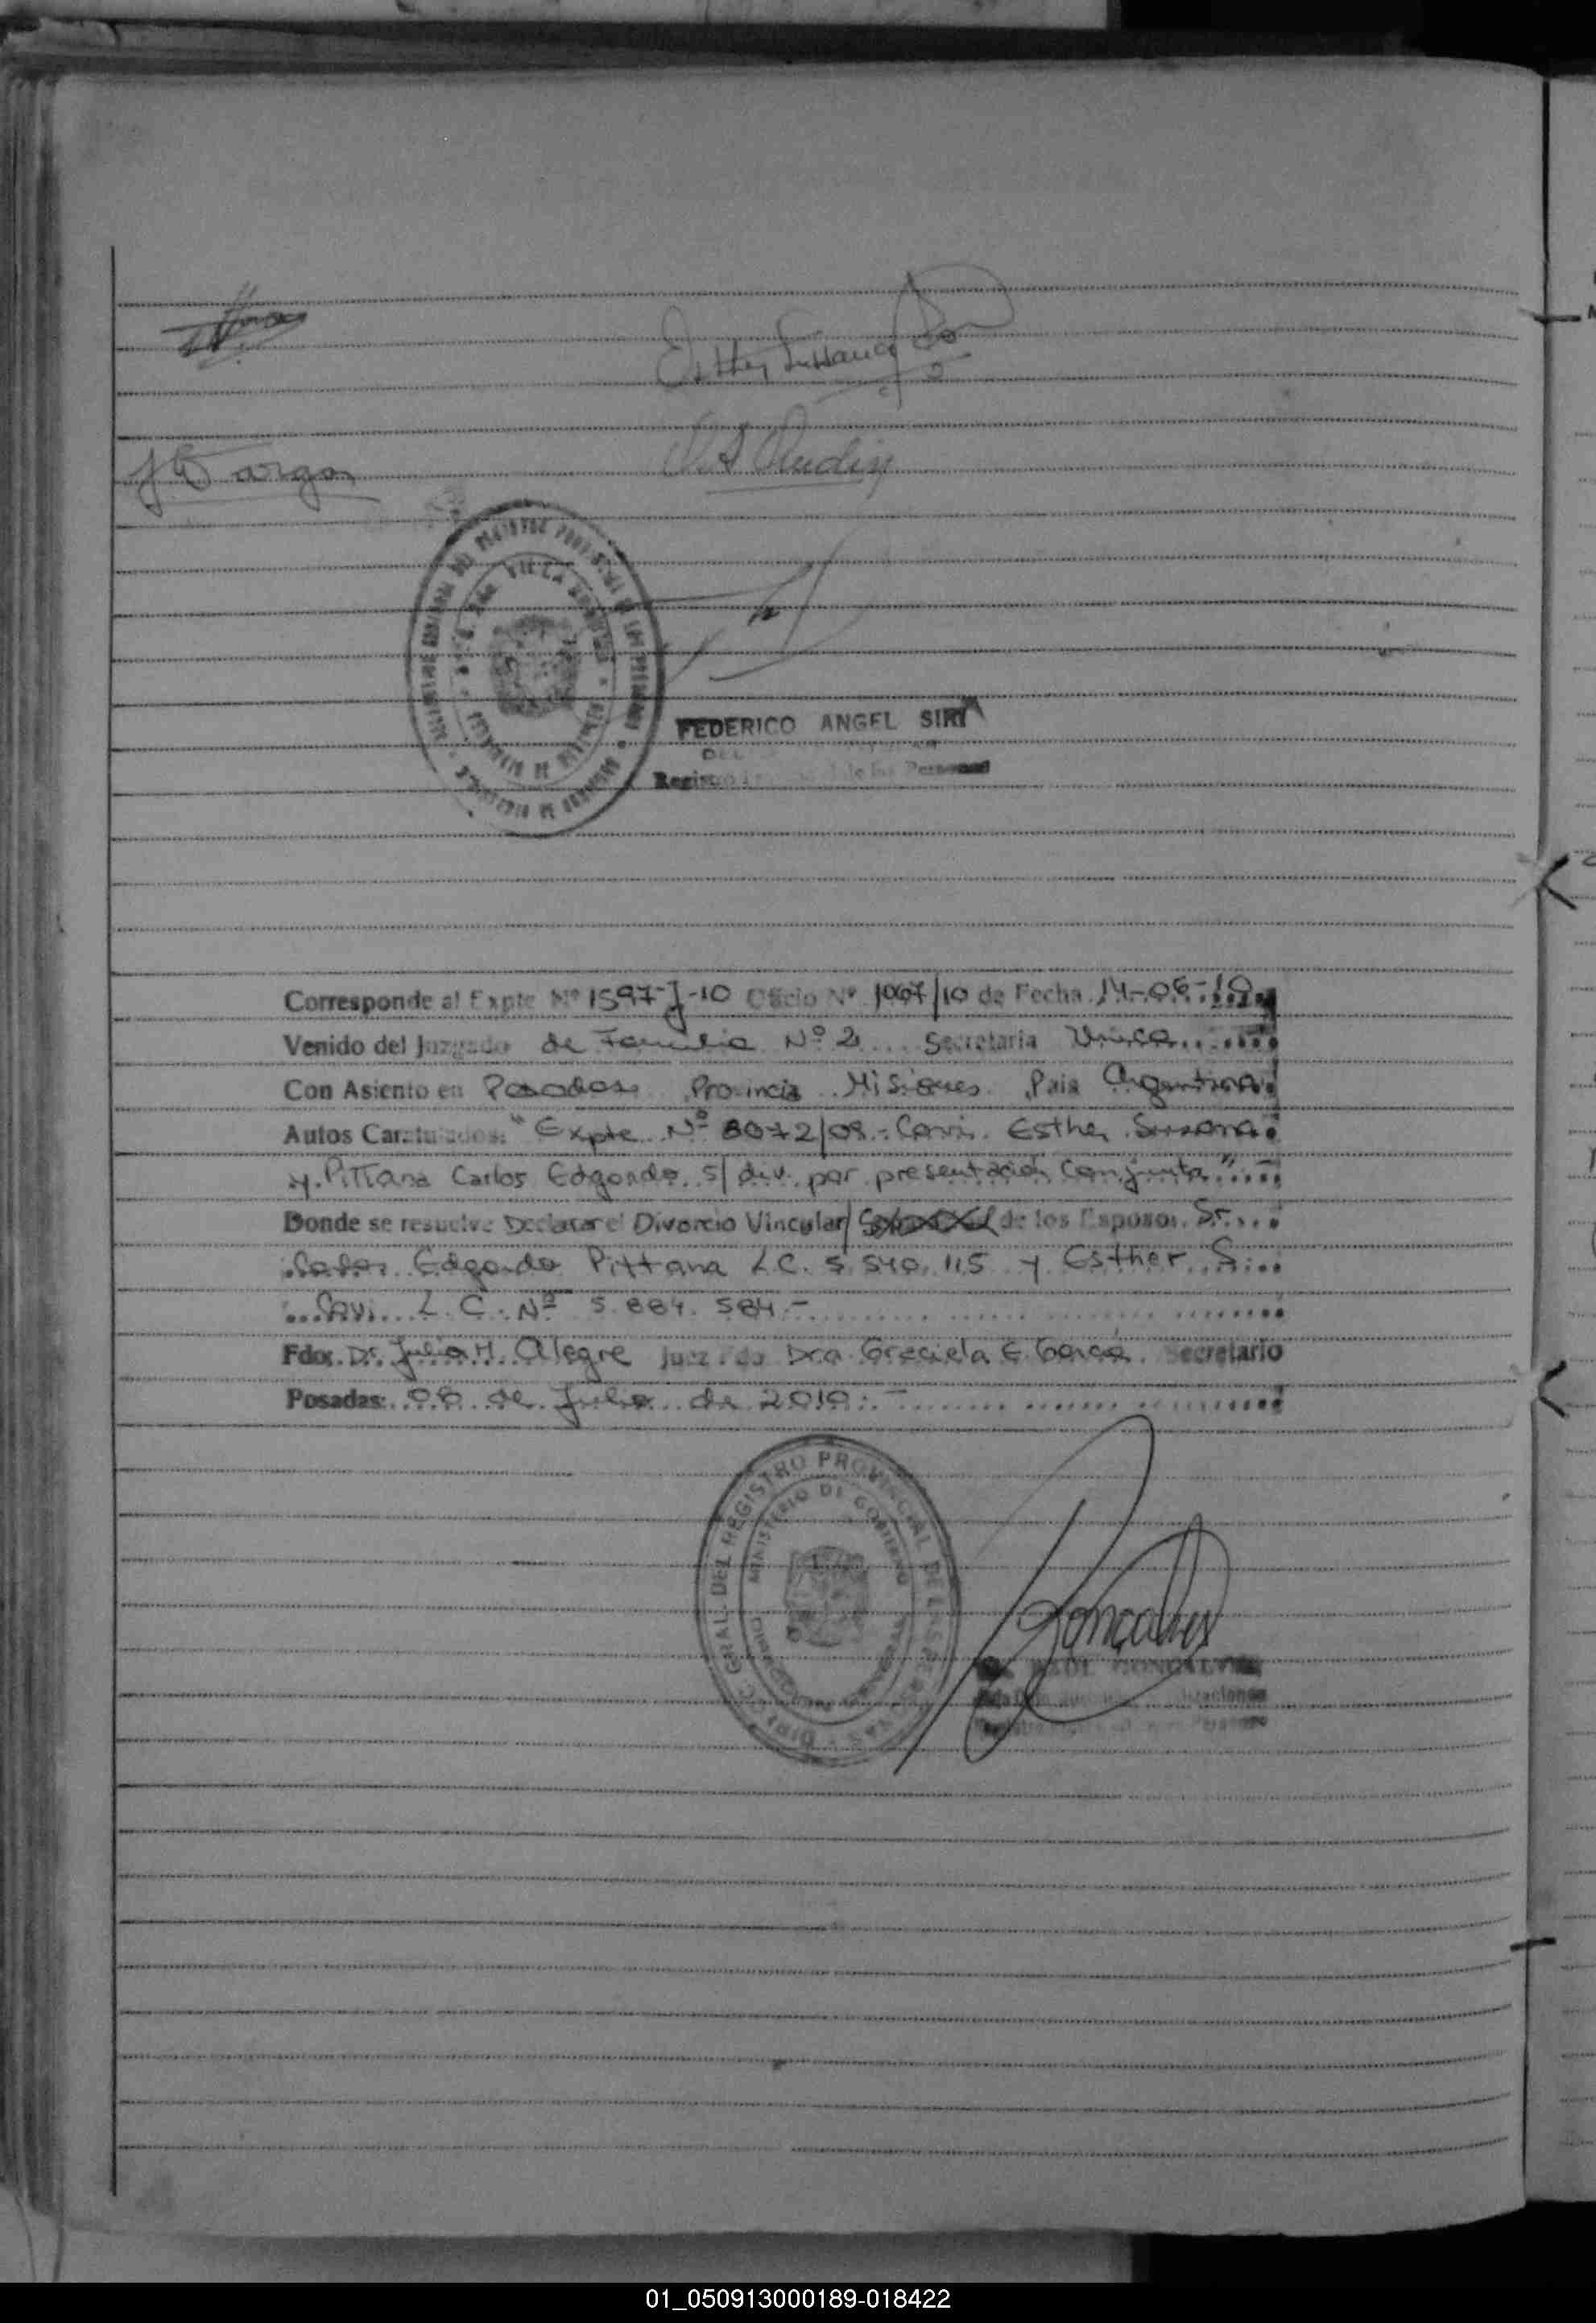 Esther Susana
FEDERICO ANGEL SIRI
Registro de las Personas
Corresponde al Expte Nº 1597-J-10 Oficio Nº 1067/10 de Fecha 14-06-10
Venido del Juzgado de Familia Nº 2 Secretaria Unica
Con Asiento en Posadas Provincia Misiones Pais Argentina
Autos Caratulados: "Expte Nº 8072/09.- Cavi Esther Susana
y Pittana Carlos Edgardo s/ div. por presentación Conjunta"
Donde se resuelve Declarar el Divorcio Vincular/ de los Esposos Sr.
Carlos Edgardo Pittana L.C. 5.540.115 y Esther S.
Cavi L.C. Nº 5.884.584.-
Fdo: Dr. Julia H. Alegre Juez Fdo Dra Graciela E. Garcia Secretario
Posadas: 08 de Julio de 2010.-
DIRECC GRAL. DEL REGISTRO PROVINCIAL DE LAS PERSONAS
MINISTERIO DE GOBIERNO
Goncalves
RAUL GONCALVES
01_050913000189-018422